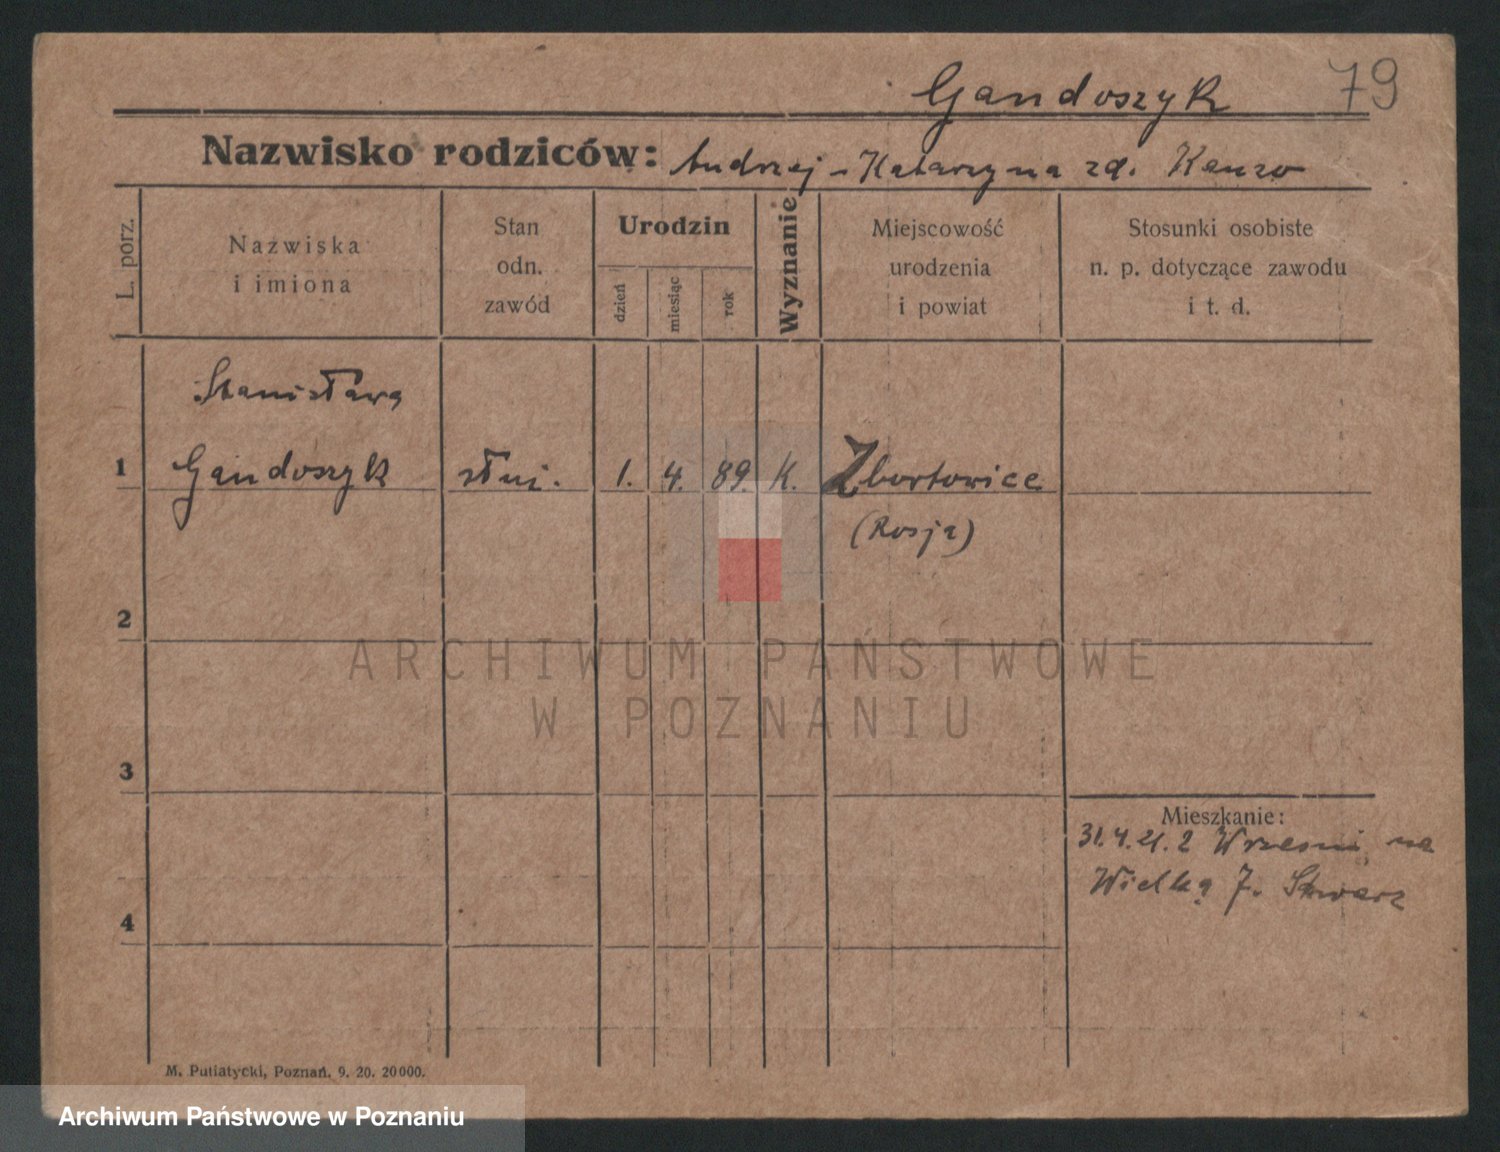 Gandoszyk 79
Nazwisko rodziców: Andrzej - Katarzyna zd. Kenzo
L. porz.
Nazwiska
i imiona
Stan
odn.
zawód
Urodzin
dzień
miesiąc
rok
Wyznanie
Miejscowość
urodzenia
i powiat
Stosunki osobiste
n. p. dotyczące zawodu
i t. d.
Stanisława
1 Gandoszyk służ. 1. 4. 89. K. Zbortowice
(Rosja)
2
3
4
Mieszkanie:
31.4.21. z Wrześni na
Wielką 7.
ARCHIWUM PAŃSTWOWE
W POZNANIU
M. Putiatycki, Poznań. 9. 20. 20000.
Archiwum Państwowe w Poznaniu